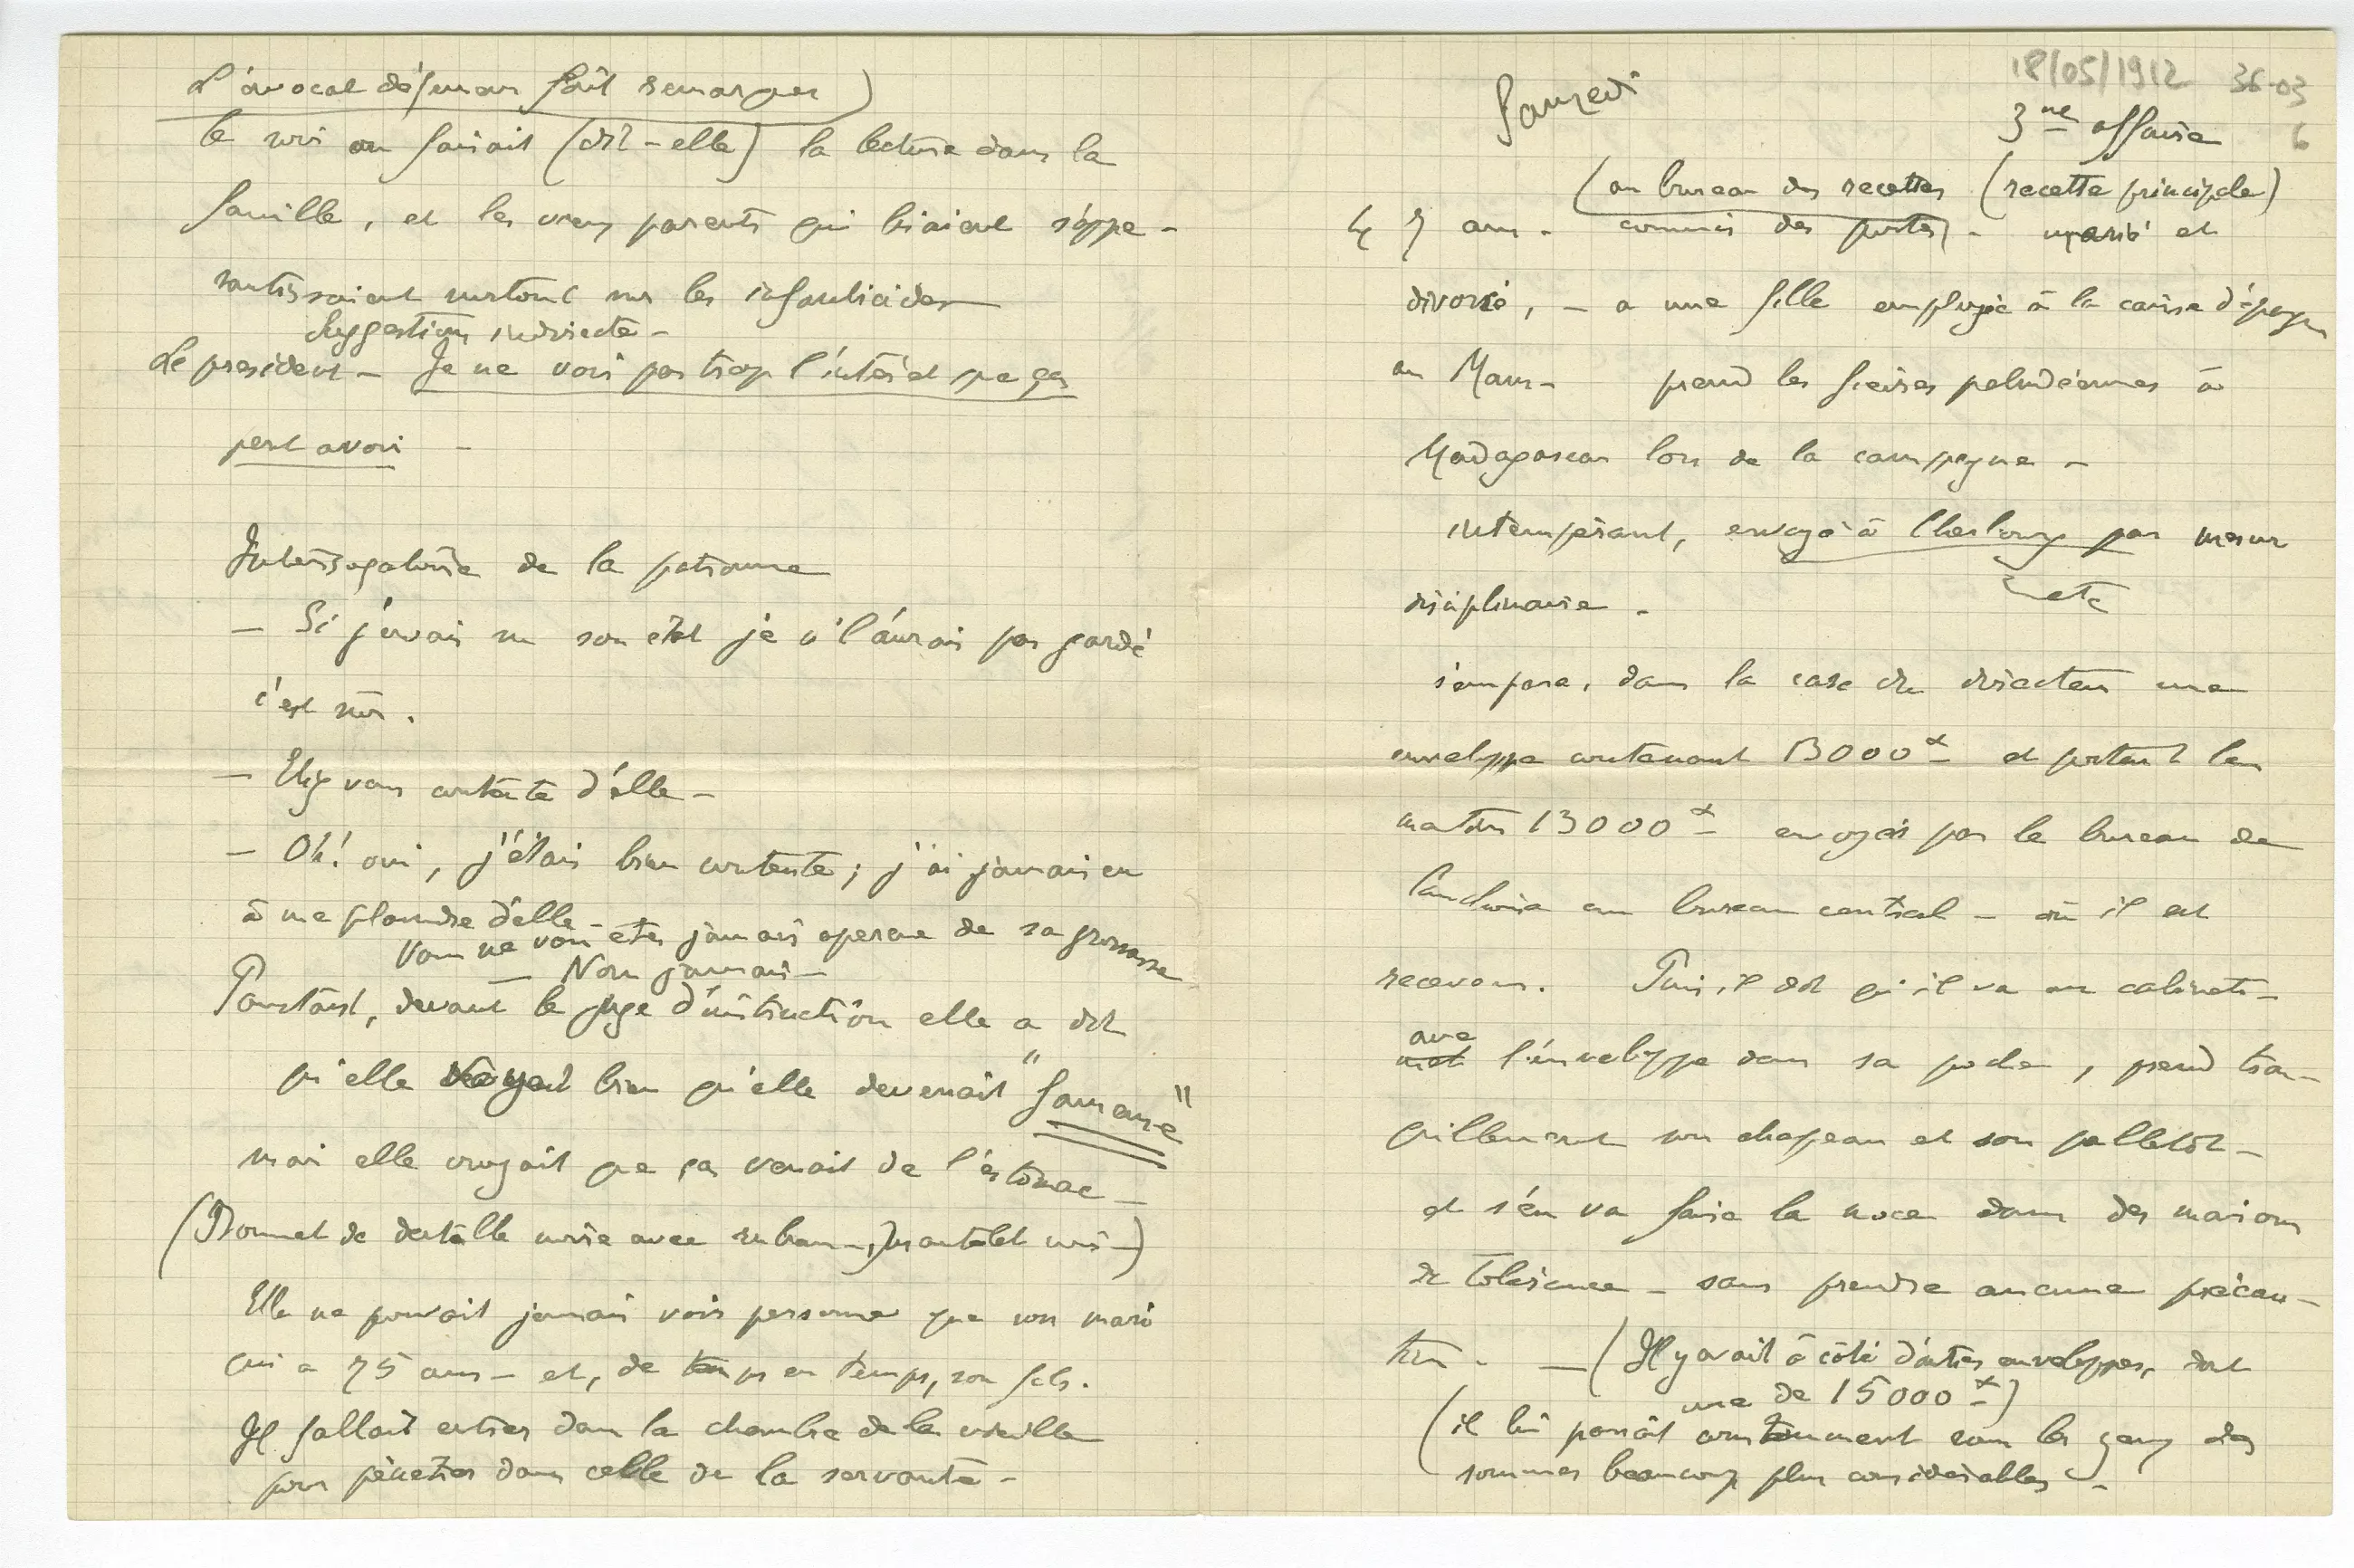 L'avocat défenseur fait remarquer)
le soir on faisait (dit-elle) la lecture dans la
famille, et les vieux parents qui lisaient s'appe-
santissaient surtout sur les infanticides
Suggestion indirecte -
Le president - Je ne vois pas trop l'intérêt que ça
peut avoir -
Interrogatoire de la patronne
- Si j'avais su son état je n' l'aurais pas gardé
c'est sûr.
- Etiez vous contente d'elle -
- Oh! oui, j'étais bien contente; j'ai jamais eu
à me plaindre d'elle -
Vous ne vous êtes jamais aperçue de sa grossesse
- Non jamais -
Pourtant, devant le juge d'instruction elle a dit
qu'elle voyait bien qu'elle devenait "
mais elle croyait que ça venait de l'estomac -
(Bonnet de dentelle noire avec rubans, mantelet noir -)
Elle ne pouvait jamais voir personne que son mari
qui a 75 ans - et, de temps en temps, son fils.
Il fallait entrer dans la chambre de la vieille
pour pénetrer dans celle de la servante -
18/05/1912 36-03
6
Samedi
3me affaire
(au bureau des recettes (recette principale)
47 ans - commis des postes) - marié et
divorcé, - a une fille employée à la caisse d'épargne
au Mans - prend les fièvres paludéennes à
Madagascar lors de la campagne -
intempérant, envoyé à Cherbourg par mesure
disciplinaire -
etc
s'empare, dans la case du directeur une
enveloppe contenant 13000 f et portant les
mentions 13000 f envoyés par le bureau de
au bureau central - où il est
receveur. Puis, il dit qu'il va au cabinets -
avec
met l'enveloppe dans sa poche, prend tran-
quillement son chapeau et son palletôt -
et s'en va faire la noce dans des maisons
de tolérance - sans prendre aucune précau-
tion. - (Il y avait à côté d'autres enveloppes, dont
une de 15000 f)
(il lui passait constamment sous les yeux des
sommes beaucoup plus considérables -